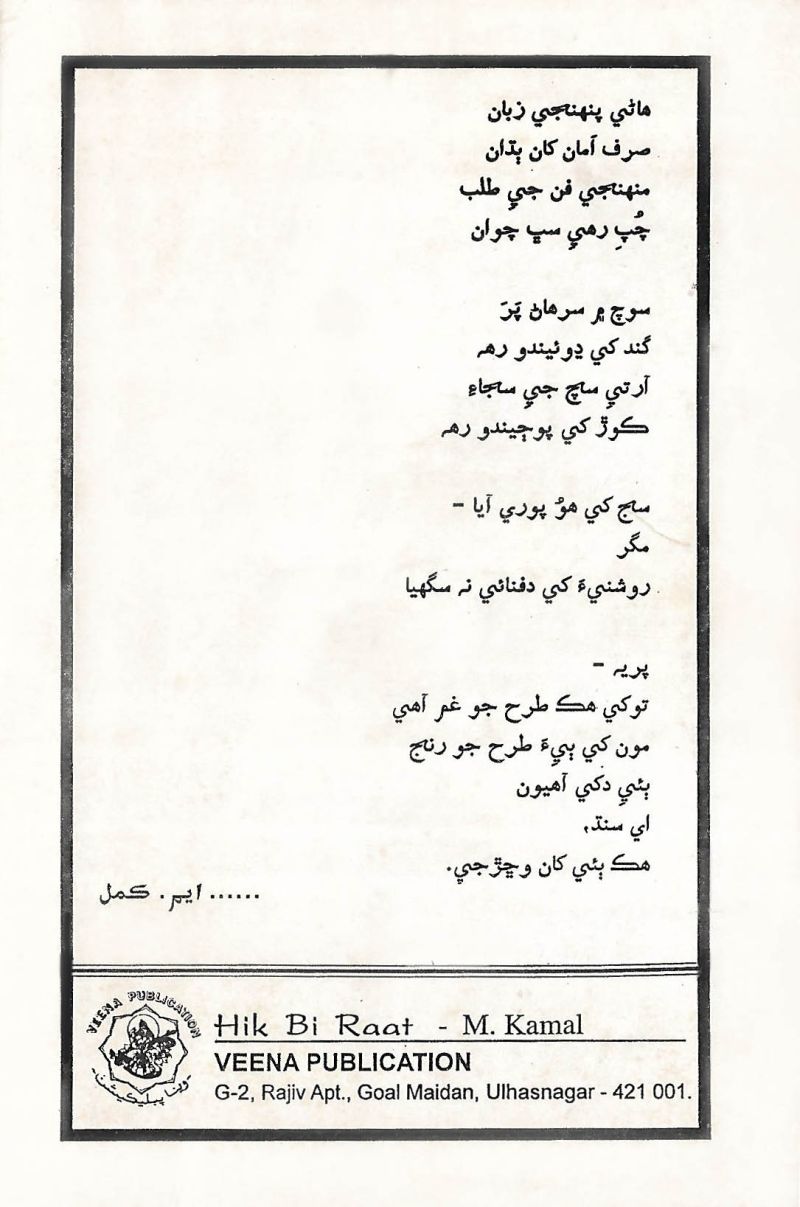 هاڻي پنهنجي زبان
صرف اَمان کان ٻڌان
منهنجي فن جيِ طلب
چُپِ رهيِ سڀ چوان
سوچ ۾ سرهاڻ ڀَرَ
گند کي ڌوئيندو رهہ
آرتيِ سچ جيِ سجاءِ
ڪوڙ کي پوڄيندو رهہ
سج کي هوُ پوري آيا –
مگر
روشنيءَ کي دفنائي نہ سگهيا
پريہ –
توکي هڪ طرح جو غم آهي
مون کي ٻيءَ طرح جو رنج
ٻئي دکي آهيون
اي سنڌ،
هڪ ٻئي کان وڇڙجي.
...... ايم. ڪمل
VEENA PUBLICATION
وينا پبليڪيشن
Hik Bi Raat - M. Kamal
VEENA PUBLICATION
G-2, Rajiv Apt., Goal Maidan, Ulhasnagar - 421 001.